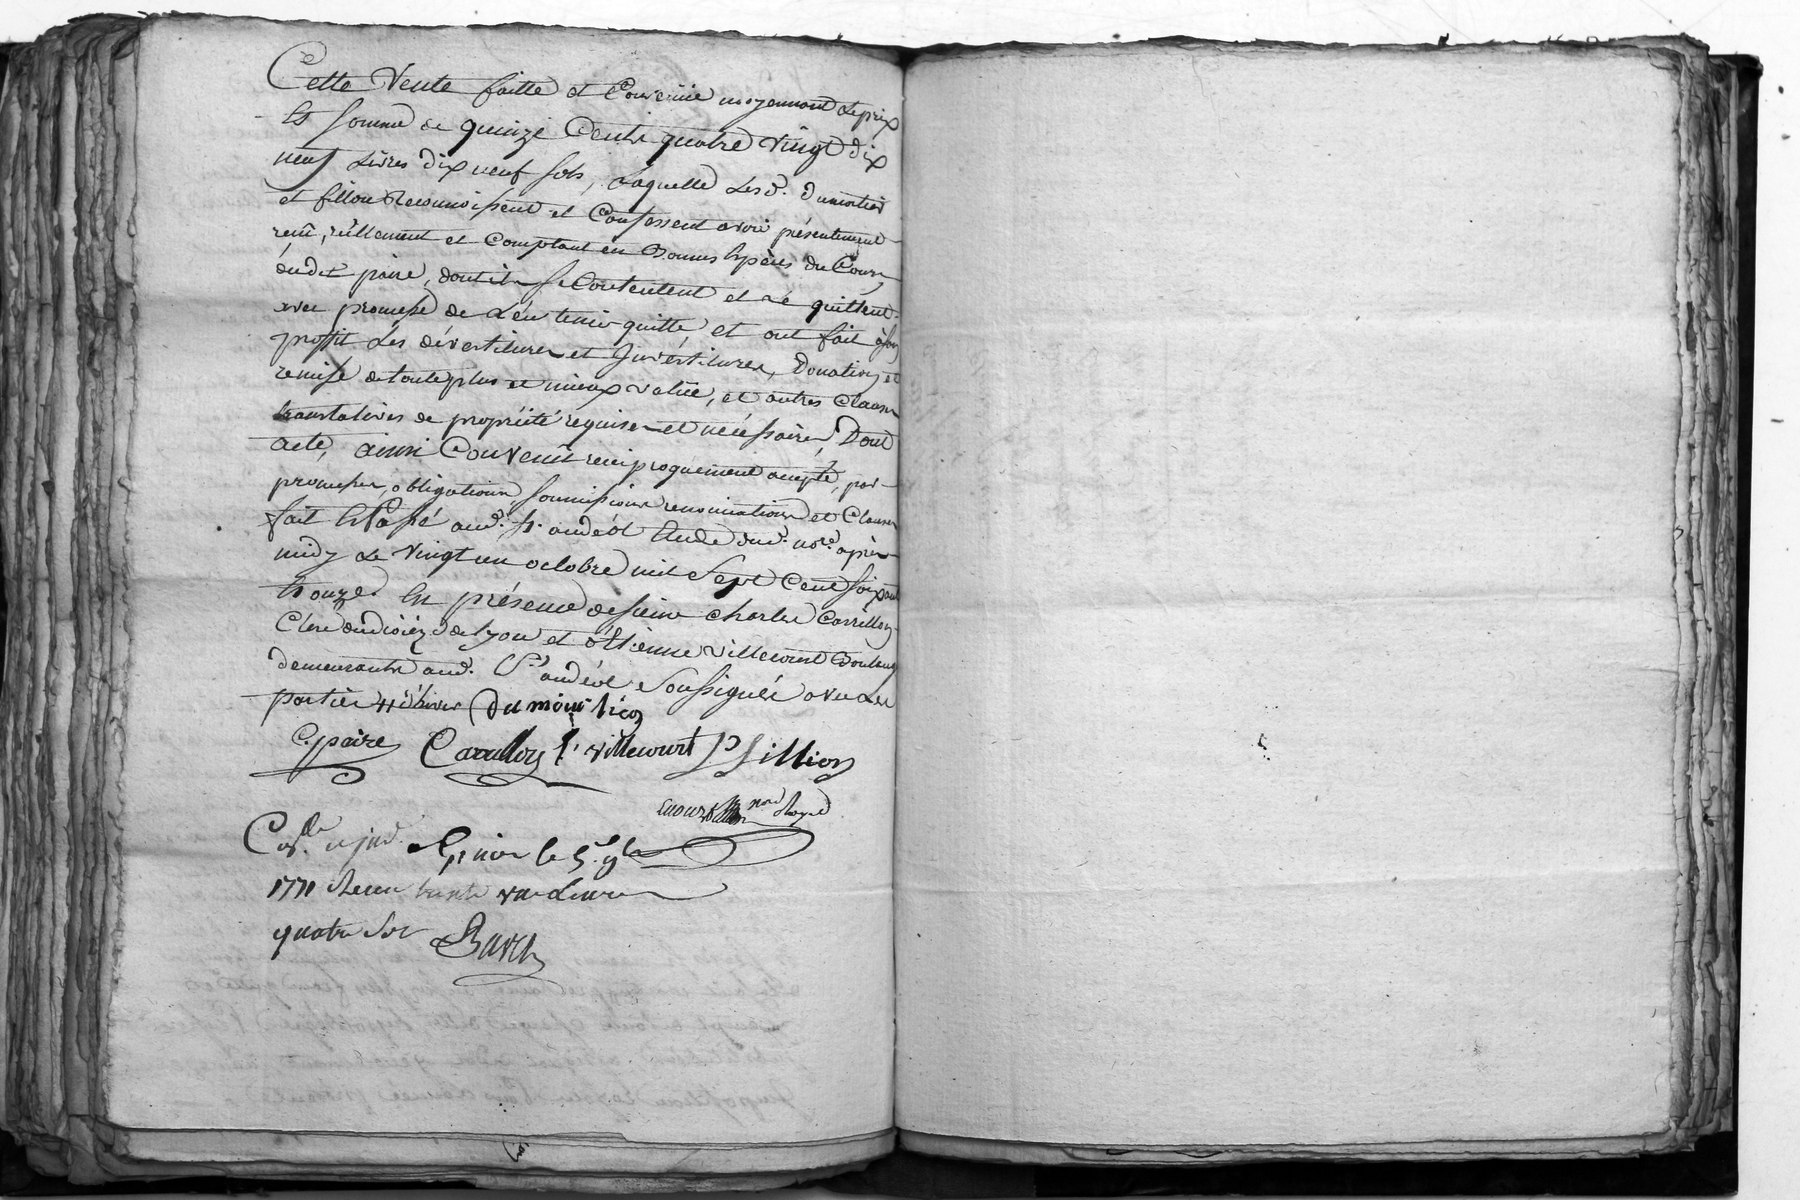 Cette Vente faitte et Convenüe moyennant Le prix
et somme de quinze Cents quatre vingt dix
neuf Livres dix neuf sols, Laquelle Les d. Dumortier
et fillon Reconnoissent et Confessent avoir présentement
reçu, réellement et Comptant en Bonnes Espèces du Cours,
dudit paire, dont ils se Contentent et Le quittent
avec promesse de L'en tenir quitte, et ont fait à son
proffit Les dévestitures et Investitures, Donation et
remise de toute plus et mieux valüe, et autres Clauses
translatives de propriété requises et nécéssaires, Dont
acte, ainsi Convenü reciproquement accepté, par
promesses, obligations, soumissions renonciations et Clauses
fait et Passé aud. St. andéol Etude dud. nore. après
midy Le vingt un octobre mil Sept Cent soixante
et onze. En présence de sieur Charles Carrillon
Clerc du diocèze de Lyon et Etienne Villecourt Boulanger
demeurants aud. St andéol Soussignés avec Les
parties
C. paire Carullon E. villecourt P fillion
nore Royal
1771 Recu trente une Livres
quatre Sols